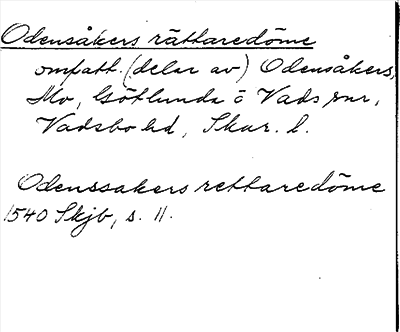 Odensåkers rättaredöme
omfatt. (delar av) Odensåkers,
Mo, Götlunda o Vads snr,
Vadsbo hd, Skar. l.
Odenssakers rettaredöme
1540 Skjb, s. 11.